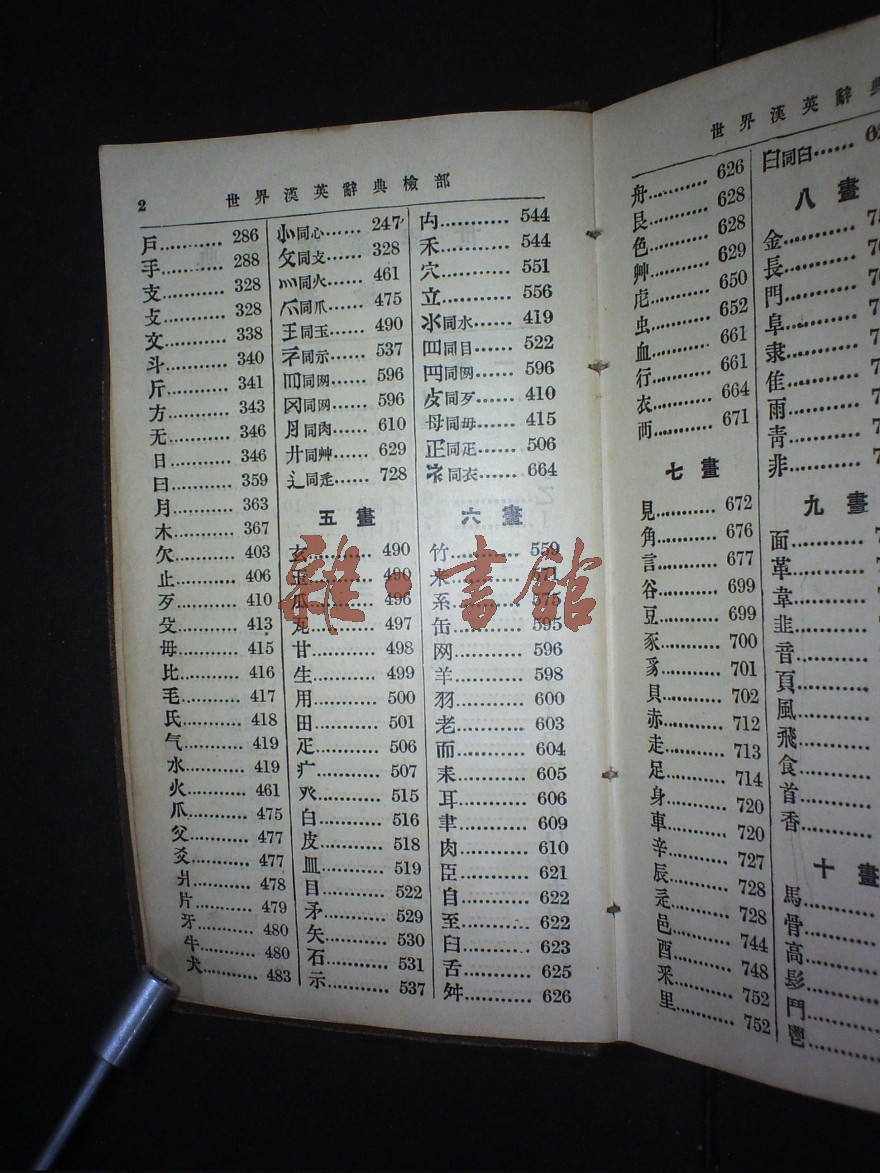 2
世界漢英辭典檢部
戶.......... 286
手.......... 288
支.......... 328
攴.......... 328
文.......... 338
斗.......... 340
斤.......... 341
方.......... 343
无.......... 346
日.......... 346
曰.......... 359
月.......... 363
木.......... 367
欠.......... 403
止.......... 406
歹.......... 410
殳.......... 413
毋.......... 415
比.......... 416
毛.......... 417
氏.......... 418
气.......... 419
水.......... 419
火.......... 461
爪.......... 475
父.......... 477
爻.......... 477
爿.......... 478
片.......... 479
牙.......... 480
牛.......... 480
犬.......... 483
同心...... 247
攵同攴...... 328
灬同火...... 461
爫同爪...... 475
王同玉...... 490
同示...... 537
同网...... 596
同网...... 596
月同肉...... 610
同艸...... 629
辶同辵...... 728
五畫
玄.......... 490
玉.......... 490
瓜.......... 496
瓦.......... 497
甘.......... 498
生.......... 499
用.......... 500
田.......... 501
疋.......... 506
疒.......... 507
癶.......... 515
白.......... 516
皮.......... 518
皿.......... 519
目.......... 522
矛.......... 529
矢.......... 530
石.......... 531
示.......... 537
禸.......... 544
禾.......... 544
穴.......... 551
立.......... 556
氺同水...... 419
同目...... 522
同网...... 596
同歹...... 410
母同毋...... 415
正同疋...... 506
衤同衣...... 664
六畫
竹.......... 559
米.......... 571
糸.......... 575
缶.......... 595
网.......... 596
羊.......... 598
羽.......... 600
老.......... 603
而.......... 604
耒.......... 605
耳.......... 606
聿.......... 609
肉.......... 610
臣.......... 621
自.......... 622
至.......... 622
臼.......... 623
舌.......... 625
舛.......... 626
世界漢英辭典
舟.......... 626
艮.......... 628
色.......... 628
艸.......... 629
虍.......... 650
虫.......... 652
血.......... 661
行.......... 661
衣.......... 664
襾.......... 671
七畫
見.......... 672
角.......... 676
言.......... 677
谷.......... 699
豆.......... 699
豕.......... 700
豸.......... 701
貝.......... 702
赤.......... 712
走.......... 713
足.......... 714
身.......... 720
車.......... 720
辛.......... 727
辰.......... 728
辵.......... 728
邑.......... 744
酉.......... 748
釆.......... 752
里.......... 752
同臼......
八畫
金..........
長..........
門..........
阜..........
隶..........
隹..........
雨..........
青..........
非..........
九畫
面..........
革..........
韋..........
韭..........
音..........
頁..........
風..........
飛..........
食..........
首..........
香..........
十畫
馬..........
骨..........
高..........
髟..........
鬥..........
鬯..........
雜·書館